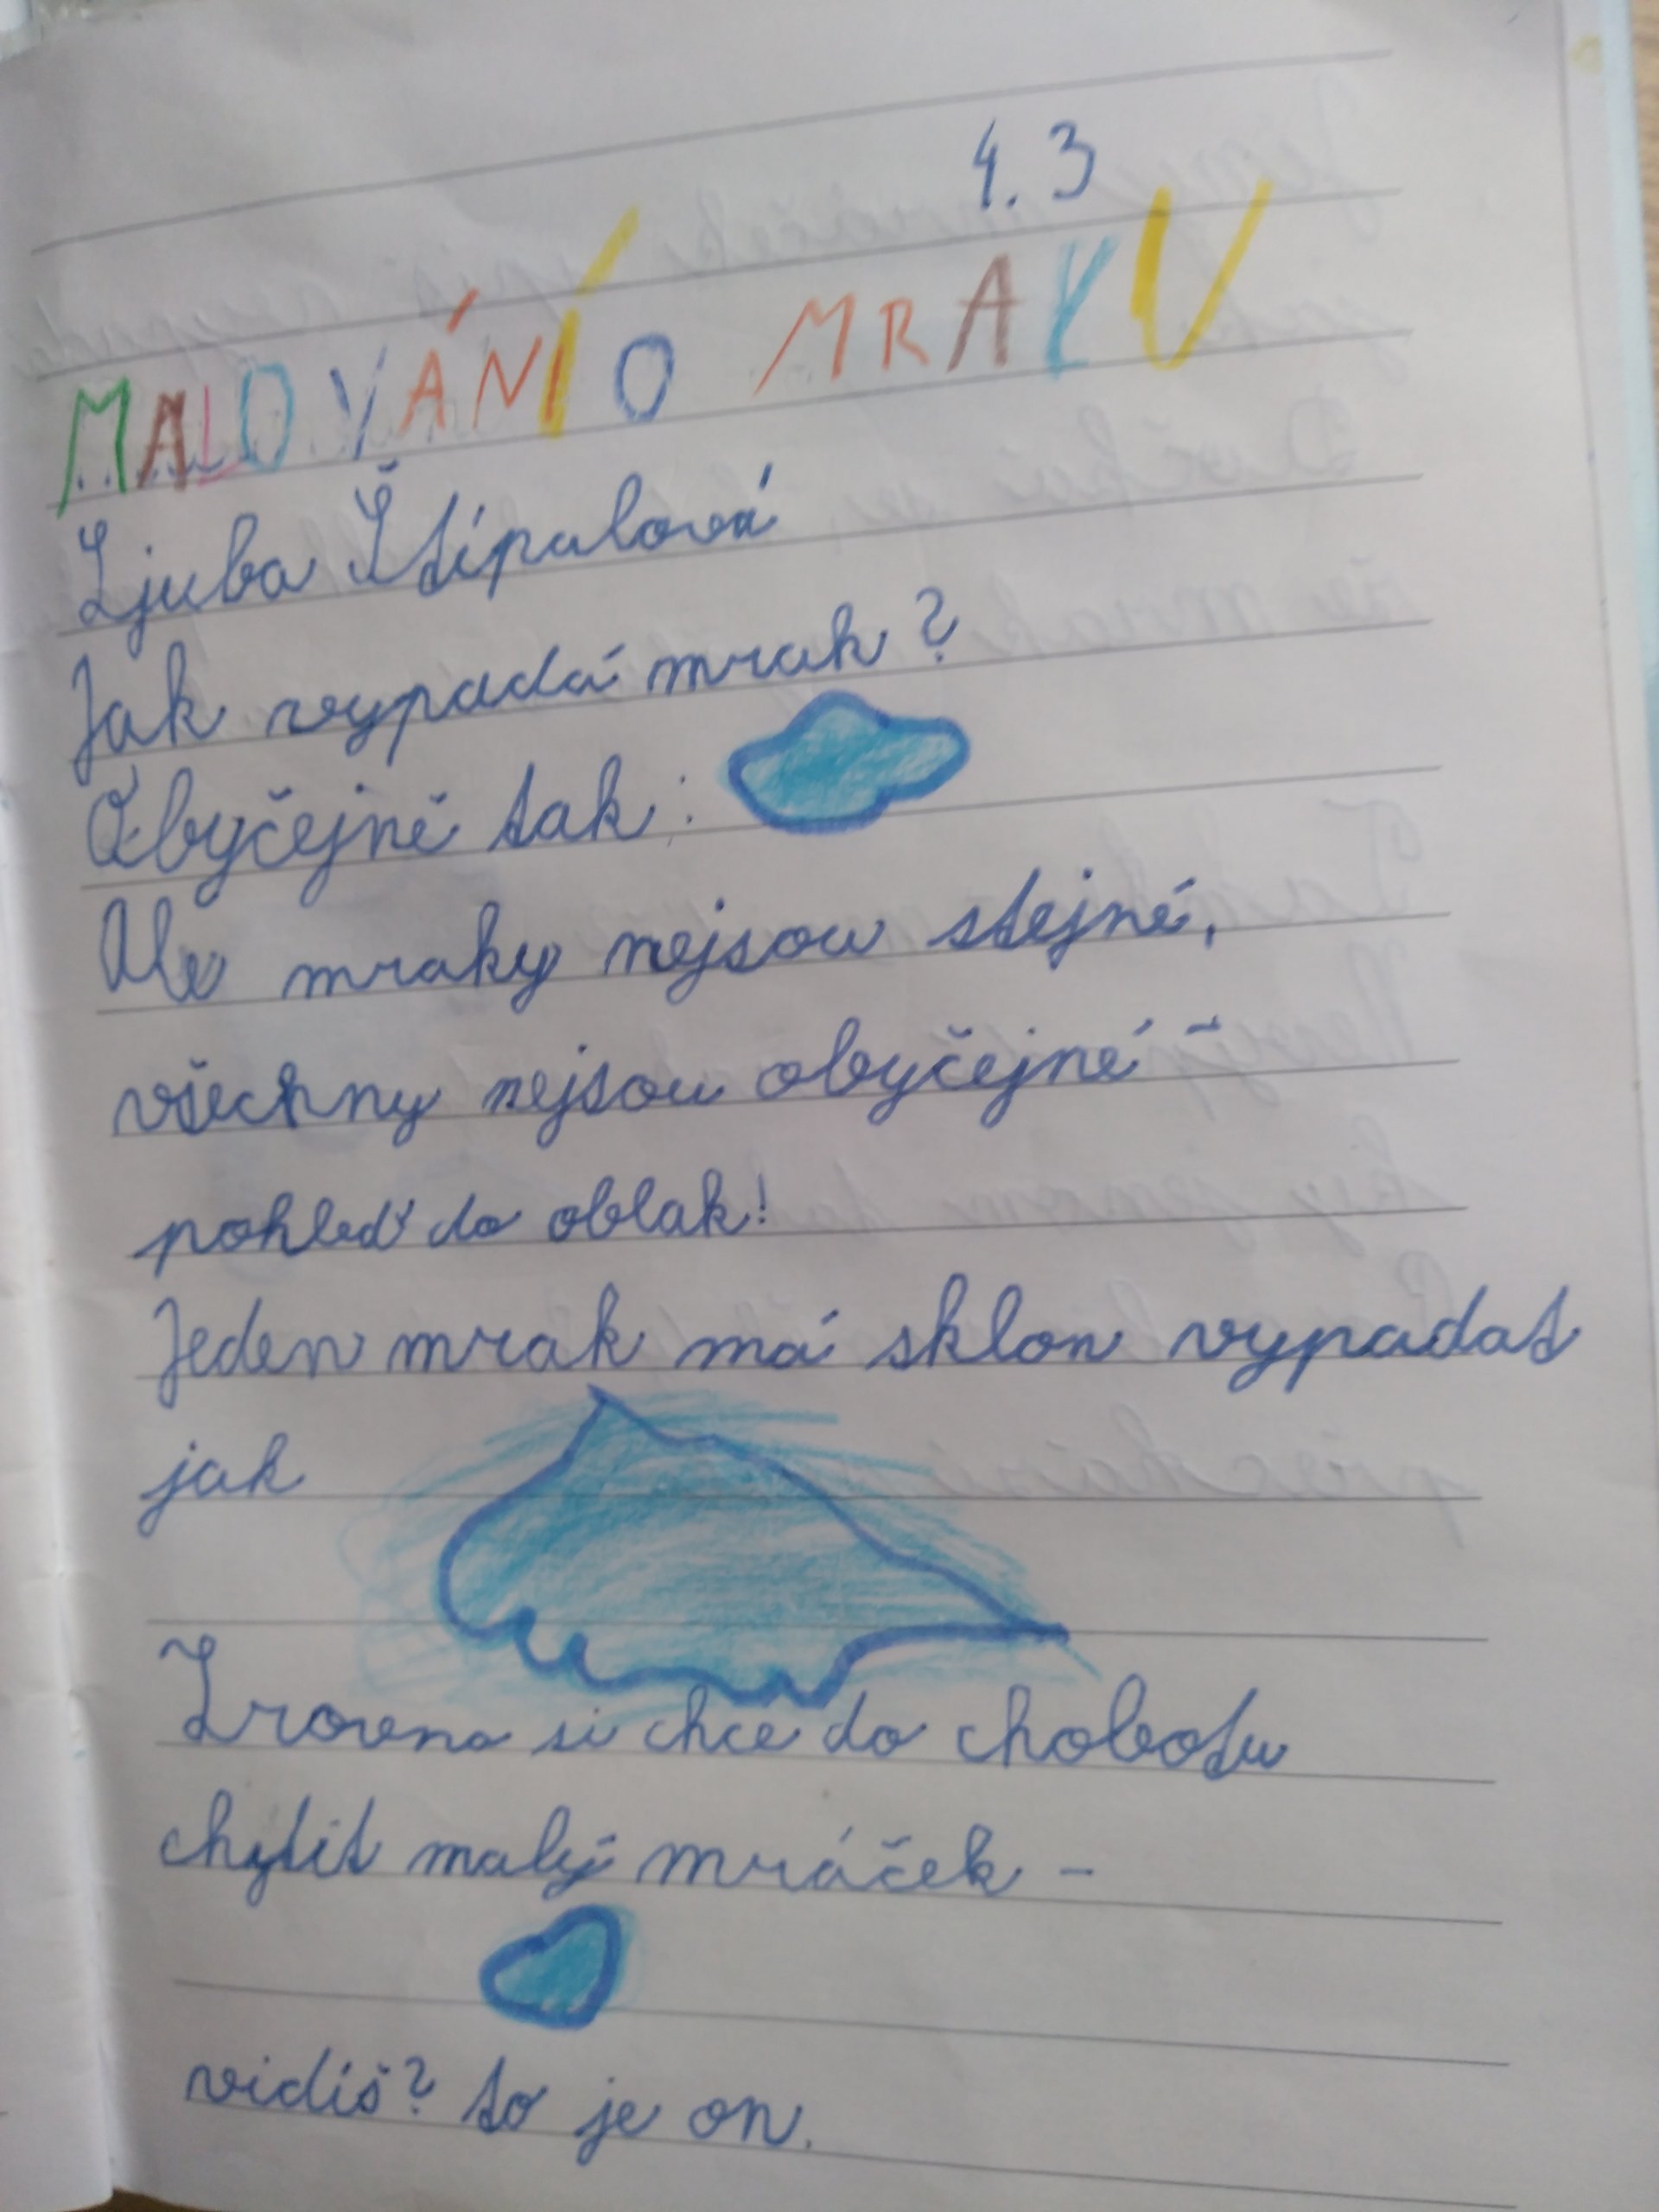 4. 3
MALOVÁNÍ O MRAKU
Ljuba Štípalová
Jak vypadá mrak?
Obyčejně tak:
Ale mraky nejsou stejné,
všechny nejsou obyčejné –
pohleď do oblak!
Jeden mrak má sklon vypadat
jak
Zrovna si chce do chobotu
chytit malý mráček –
vidíš? to je on.